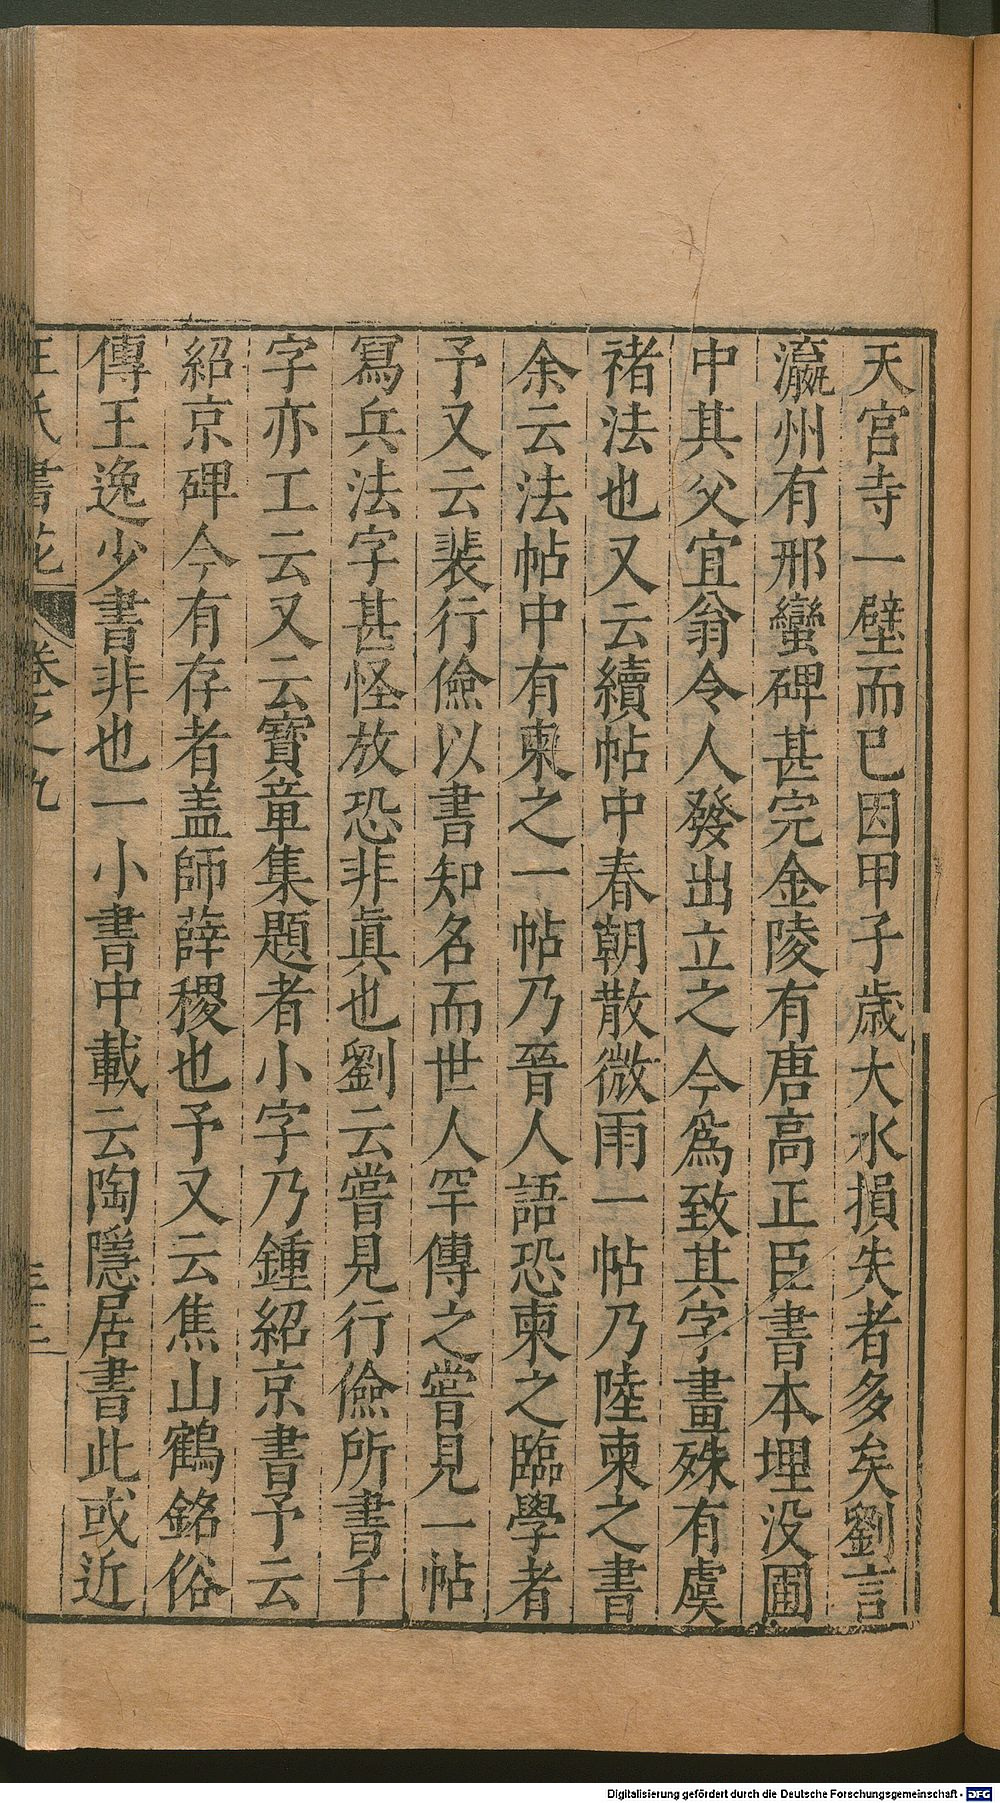 天宫寺一壁而已因甲子歳大水損失者多矣劉言
瀛州有邢巒碑甚完金陵有唐高正臣書本埋没圃
中其父宜翁令人發出立之今爲致其字畫殊有虞
褚法也又云續帖中春朝散微雨一帖乃陸柬之書
余云法帖中有柬之一帖乃晉人語恐柬之臨學者
予又云裴行儉以書知名而世人罕傳之嘗見一帖
冩兵法字甚怪放恐非眞也劉云嘗見行儉所書千
字亦工云又云寳章集題者小字乃鍾紹京書予云
紹京碑今有存者盖師薛稷也予又云焦山鶴銘俗
傳王逸少書非也一小書中載云陶隱居書此或近
王氏書苑 卷之九 三十二
Digitalisierung gefördert durch die Deutsche Forschungsgemeinschaft - DFG